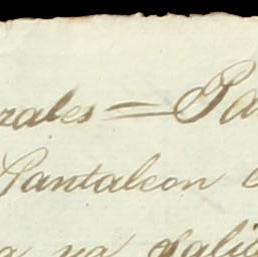 rales = Pa
Pantaleon
a ya Salio